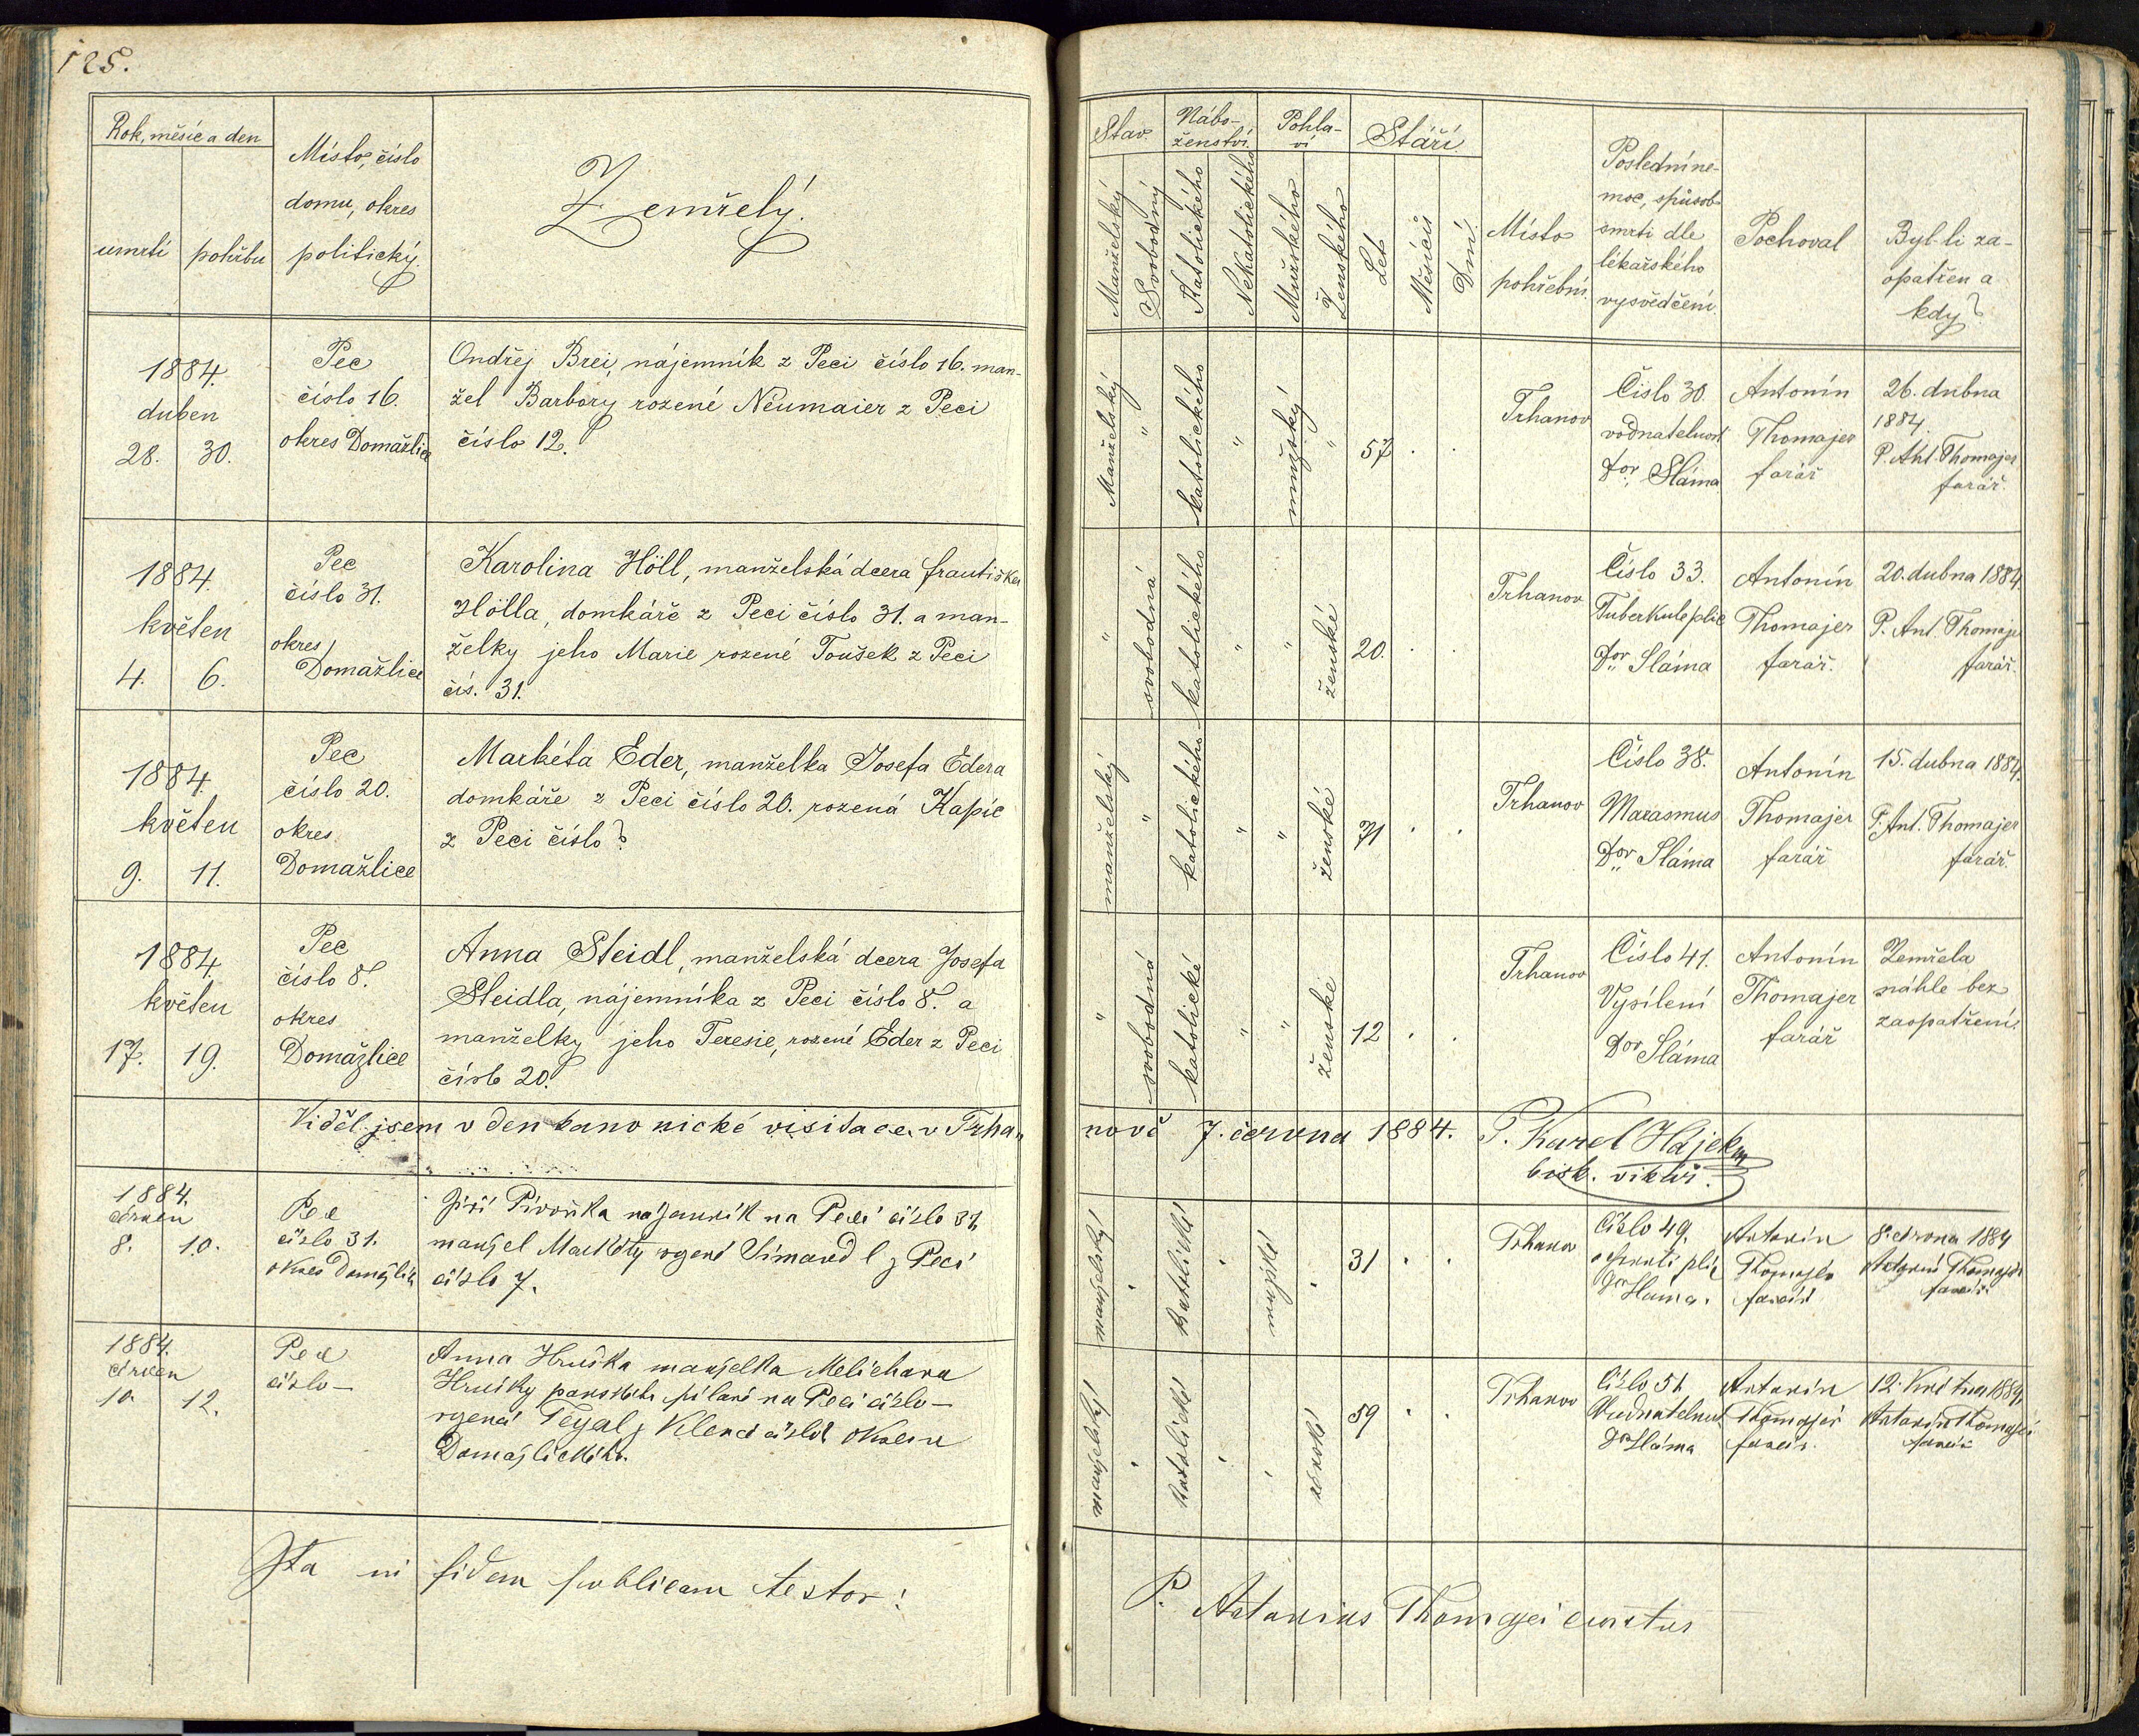 125.
Rok, měsíc a den
umrtí
pohřbu
Místo, číslo
domu, okres
politický.
Zemřelý.
Stav
Manželský
Svobodný
Nábo-
ženství.
Katolického
Nekatolického
Pohla-
ví
Mužského
Ženského
Stáří
Let
Měsíců
Dní.
Místo
pohřební.
Poslední ne-
moc, způsob
smrti dle
lékařského
vysvědčení
Pochoval
Byl-li za-
opatřen a
kdy?
1884.
duben
28. 30.
Pec
číslo 16.
okres Domažlice
Ondřej Brei, nájemník z Peci číslo 16. man-
žel Barbory rozené Neumaier z Peci
číslo 12.
Manželský
"
katolického
"
mužský
"
57 . .
Trhanov
Číslo 30.
vodnatelnost
Dor Sláma
Antonín
Thomajer
farář
26. dubna
1884.
P. Ant. Thomajer
farář.
1884.
květen
4. 6.
Pec
číslo 31.
okres
Domažlice
Karolina Höll, manželská dcera Františka
Hölla, domkáře z Peci číslo 31. a man-
želky jeho Marie rozené Toušek z Peci
čís. 31.
"
svobodná
katolického
"
"
ženské
20. . .
Trhanov
Číslo 33.
Tuberkule plic
Dor Sláma
Antonín
Thomajer
farář.
20. dubna 1884.
P. Ant. Thomajer
farář.
1884.
květen
9. 11.
Pec
číslo 20.
okres
Domažlice
Markéta Eder, manželka Josefa Edera
domkáře z Peci číslo 20. rozená Kapic
z Peci číslo?
manželský
"
katolického
"
"
ženské
71 . .
Trhanov
Číslo 38.
Marasmus
Dor Sláma
Antonín
Thomajer
farář
15. dubna 1884.
P. Ant. Thomajer
farář.
1884.
květen
17. 19.
Pec
číslo 8.
okres
Domažlice
Anna Steidl, manželská dcera Josefa
Steidla, nájemníka z Peci číslo 8. a
manželky jeho Teresie, rozené Eder z Peci
číslo 20.
"
svobodná
katolické
"
"
ženské
12 . .
Trhanov
Číslo 41.
Vysílení
Dor Sláma
Antonín
Thomajer
farář
Zemřela
náhle bez
zaopatření.
Viděl jsem v den kanonické visitace v Trha-
nově 7. června 1884. P. Karel Hájek
bisk. vikář.
1884.
červen
8. 10.
Pec
číslo 31.
okres Domažlice
Jiří Pivoňka nájemník na Peci číslo 31
manžel Markéty rozené z Peci
číslo 7.
manželský
katolické
mužské
31 . .
Trhanov
Číslo 49.
plic
Dr Sláma.
Antonín
Thomajer
farář
8. června 1884
Antonín Thomajer
farář
1884.
červen
10. 12.
Pec
číslo —
Anna Hruška manželka Melichara
Hrušky na Peci číslo —
rozená z Klenčí číslo okresu
Domažlického.
manželský
katolické
ženské
59 . .
Trhanov
Číslo 51
Vodnatelnost
Dr Sláma
Antonín
Thomajer
farář.
12. května 1884,
Antonín Thomajer
farář
Ita in fidem publicam testor!
P. Antonius Thomajer curatus